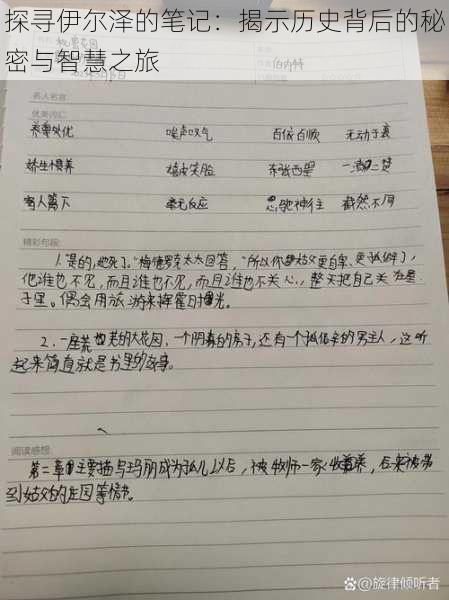 探寻伊尔泽的笔记：揭示历史背后的秘
密与智慧之旅
伯内特
名人名言:
优美词汇:
养尊处优 唉声叹气 百依百顺 无动于衷
娇生惯养 嬉皮笑脸 东张西望 一清二楚
寄人篱下 毫无反应 心驰神往 截然不同
精彩句段:
1.“是的,他死了。”梅德罗克太太回答,“所以你姑父更自卑、更孤僻了,
他谁也不见,而且谁也不见,而且谁也不关心,整天把自己关在屋
子里。偶会用旅游来挥霍时光。
2.一座荒芜的大花园,一个阴森的房子,还有一个孤僻的男主人,这听
起来简直就是书里的故事。
阅读感想:
第二章主要描写玛丽成为孤儿以后,被牧师一家收养,后来被带
到姑父的庄园等情节。
@旋律倾听者